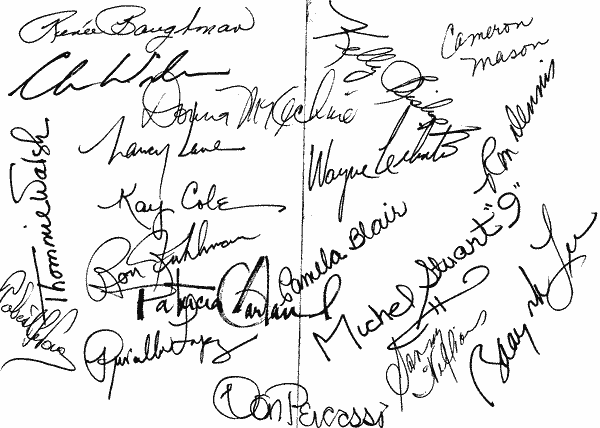 Renée Baughman
Kelly
Cameron
Mason
Donna McKechnie
Nancy Lane
Ron Dennis
Wayne
Thommie Walsh
Kay Cole
Pamela Blair
Ron Kuhlman
Patricia Garland
Michel Stuart "9"
Baayork Lee
Priscilla Lopez
Sammy
Williams
Don Percassi